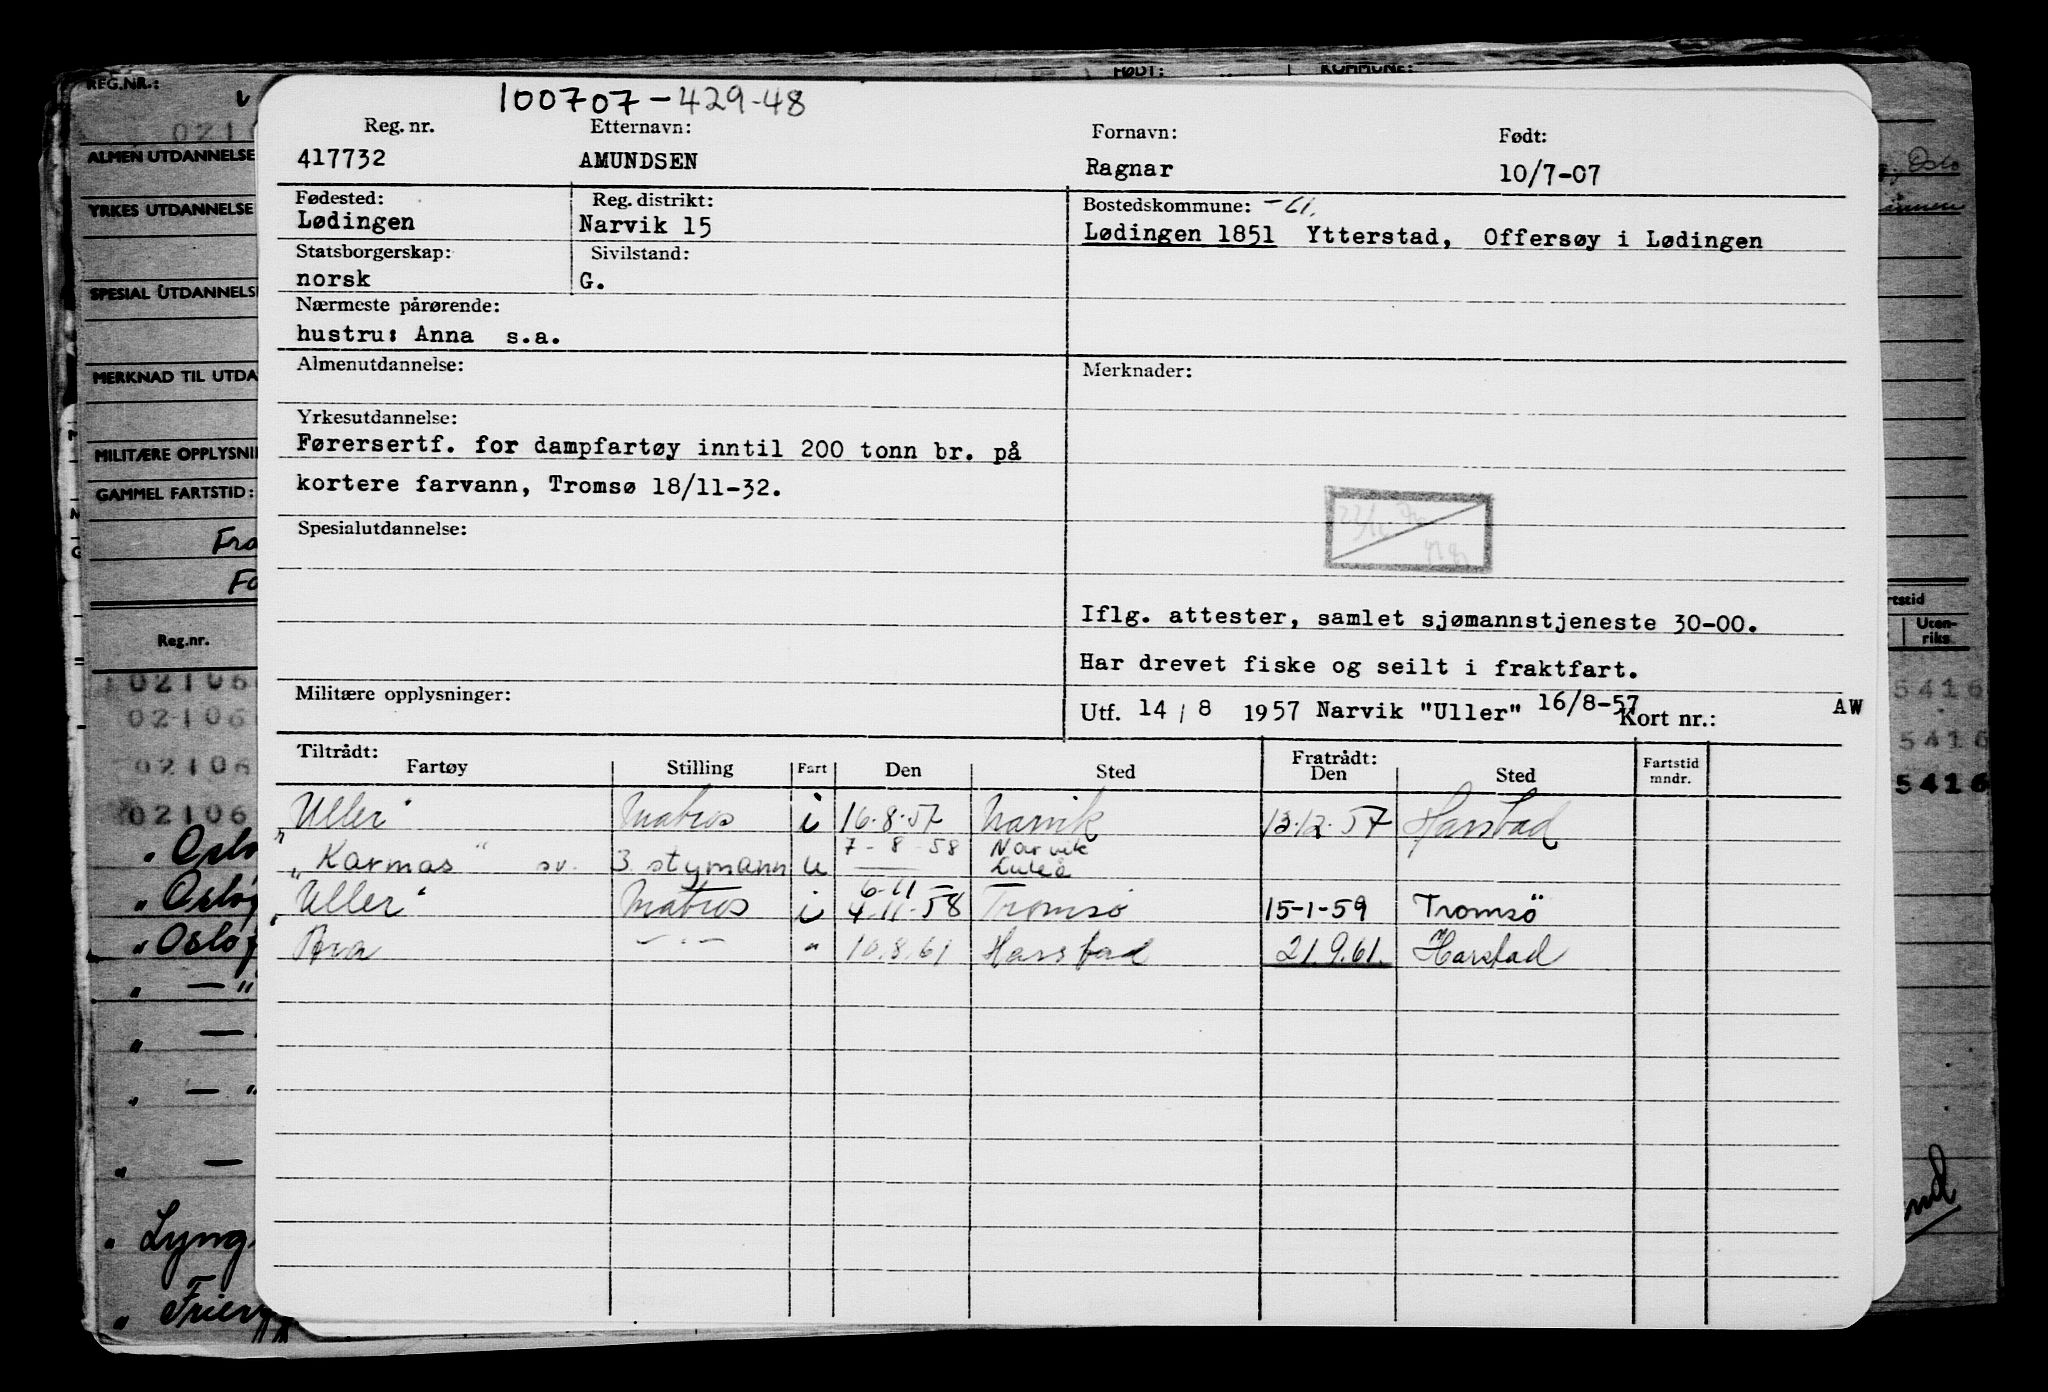 REG.NR.:
FØDT:
KOMMUNE:
100707-429-48
Reg. nr.
Etternavn:
Fornavn:
Født:
417732
AMUNDSEN
Ragnar
10/7-07
Fødested:
Reg. distrikt:
Bostedskommune: -61.
Lødingen
Narvik 15
Lødingen 1851 Ytterstad, Offersøy i Lødingen
Statsborgerskap:
Sivilstand:
norsk
G.
Nærmeste pårørende:
hustru: Anna s.a.
Almenutdannelse:
Merknader:
Yrkesutdannelse:
Førersertf. for dampfartøy inntil 200 tonn br. på
kortere farvann, Tromsø 18/11-32.
Spesialutdannelse:
Iflg. attester, samlet sjømannstjeneste 30-00.
Har drevet fiske og seilt i fraktfart.
Militære opplysninger:
Utf. 14 / 8 1957 Narvik "Uller" 16/8-57 Kort nr.: AW
Tiltrådt:
Fartøy
Stilling
Fart
Den
Sted
Fratrådt:
Den
Sted
Fartstid
mndr.
"Uller" Matros i 16.8.57 Narvik 13.12.57 Harstad
"Karmas" sv. 3 styrmann u 7-8-58 Narvik
Luleå
"Uller" Matros i 6-11-
4-11-58 Tromsø 15-1-59 Tromsö
Bra —.— " 10.8.61 Harstad 21.9.61. Harstad
ALMEN UTDANNELSE
YRKES UTDANNELSE
SPESIAL UTDANNELSE
MERKNAD TIL UTDA
MILITÆRE OPPLYSNI
GAMMEL FARTSTID:
Fra
Fo
Reg.nr.
02106
02106
02106
02106
" Oslo
" Oslo
" Oslo
" — "
" —
" — "
" —
" Lyng
" Frier
Oslo
rtstid
Uten-
riks
5416
5416
5416